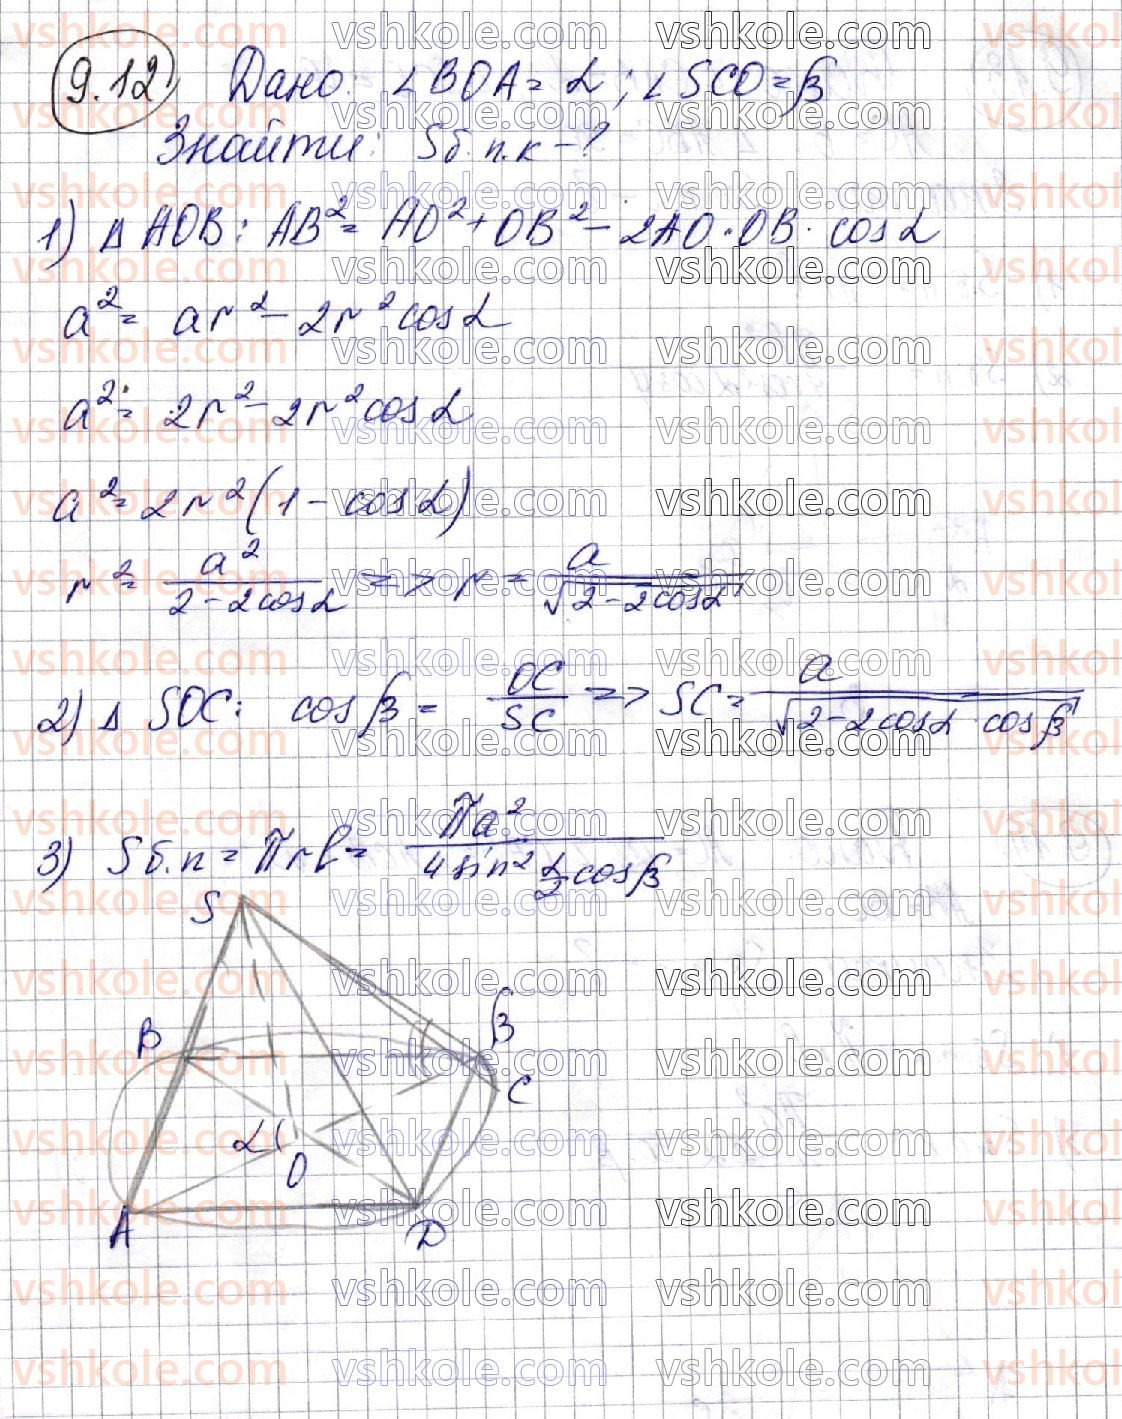 9.12 Дано: ∠BOA = α; ∠SCO = β
Знайти: Sб.п.к - ?
1) Δ AOB: AB² = AO² + OB² - 2AO·OB·cosα
a² = ar² - 2r² cosα
a² = 2r² - 2r² cosα
a² = 2r² (1 - cosα)
r² = a² / (2 - 2cosα) => r = a / √(2 - 2cosα)
2) Δ SOC: cosβ = OC / SC => SC = a / √(2 - 2cosα · cosβ)
3) Sб.п = πrl = πa² / (4 sin² α/2 cosβ)
S
B
β
C
α
O
A
D
vshkole.com